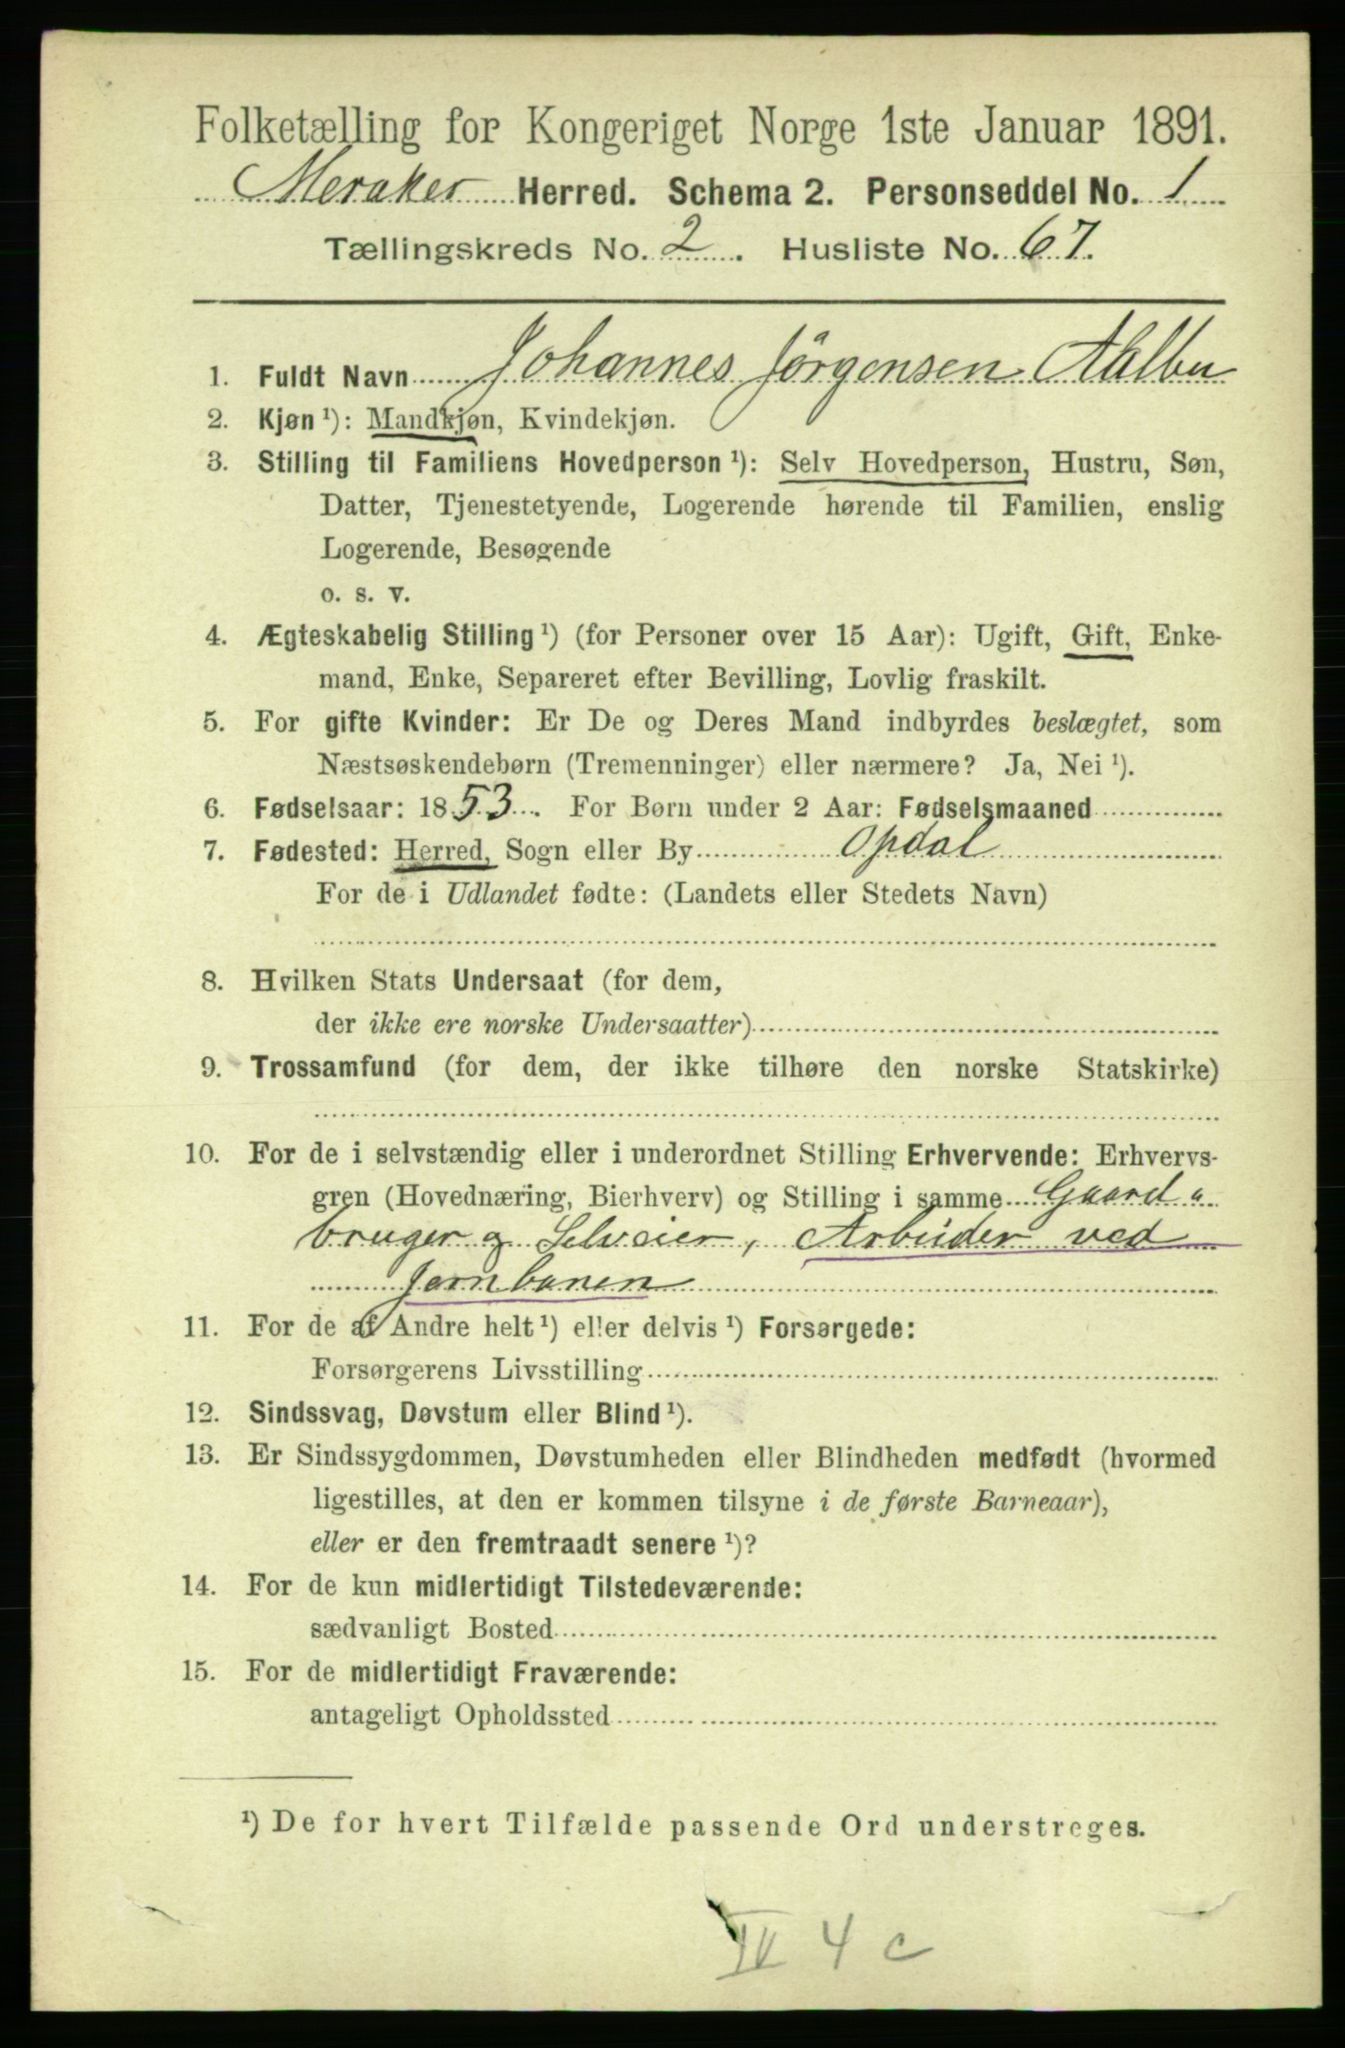 Folketælling for Kongeriget Norge 1ste Januar 1891.
Meraker Herred. Schema 2. Personseddel No. 1
Tællingskreds No. 2. Husliste No. 67.
1. Fuldt Navn Johannes Jörgensen Aalbu
2. Kjøn ¹): Mandkjøn, Kvindekjøn.
3. Stilling til Familiens Hovedperson ¹): Selv Hovedperson, Hustru, Søn,
Datter, Tjenestetyende, Logerende hørende til Familien, enslig
Logerende, Besøgende
o. s. v.
4. Ægteskabelig Stilling ¹) (for Personer over 15 Aar): Ugift, Gift, Enke-
mand, Enke, Separeret efter Bevilling, Lovlig fraskilt.
5. For gifte Kvinder: Er De og Deres Mand indbyrdes beslægtet, som
Næstsøskendebørn (Tremenninger) eller nærmere? Ja, Nei ¹).
6. Fødselsaar: 1853. For Børn under 2 Aar: Fødselsmaaned
7. Fødested: Herred, Sogn eller By Opdal
For de i Udlandet fødte: (Landets eller Stedets Navn)
8. Hvilken Stats Undersaat (for dem,
der ikke ere norske Undersaatter)
9. Trossamfund (for dem, der ikke tilhøre den norske Statskirke)
10. For de i selvstændig eller i underordnet Stilling Erhvervende: Erhvervs-
gren (Hovednæring, Bierhverv) og Stilling i samme Gaard
bruger og Selveier, Arbeider ved
Jernbanen
11. For de af Andre helt ¹) eller delvis ¹) Forsørgede:
Forsørgerens Livsstilling
12. Sindssvag, Døvstum eller Blind ¹).
13. Er Sindssygdommen, Døvstumheden eller Blindheden medfødt (hvormed
ligestilles, at den er kommen tilsyne i de første Barneaar),
eller er den fremtraadt senere ¹)?
14. For de kun midlertidigt Tilstedeværende:
sædvanligt Bosted
15. For de midlertidigt Fraværende:
antageligt Opholdssted
¹) De for hvert Tilfælde passende Ord understreges.
IV 4 c